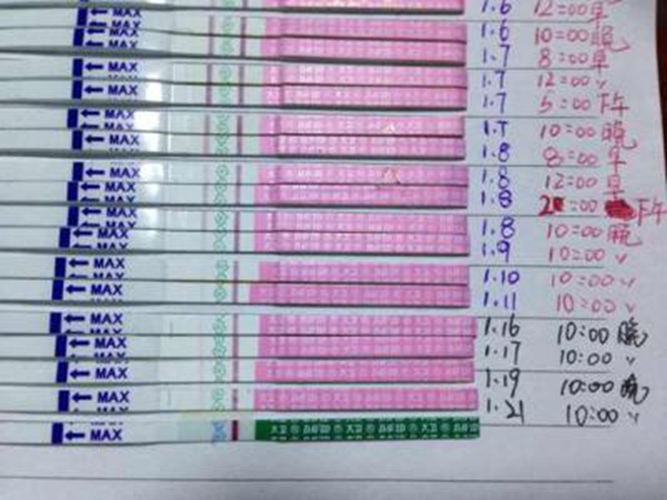 MAX 1.6 12:00 早
MAX 1.6 10:00 晚
MAX 1.7 8:00 早
MAX 1.7 12:00 v
MAX 1.7 5:00 下午
MAX 1.7 10:00 晚
MAX 1.8 8:00 早
MAX 1.8 12:00 早
MAX 1.8 2:00 下午
MAX 1.8 10:00 晚
MAX 1.9 10:00 v
MAX 1.10 10:00 v
MAX 1.11 10:00 v
MAX 1.16 10:00 晚
MAX 1.17 10:00 v
MAX 1.19 10:00 晚
MAX 1.21 10:00 v
MAX